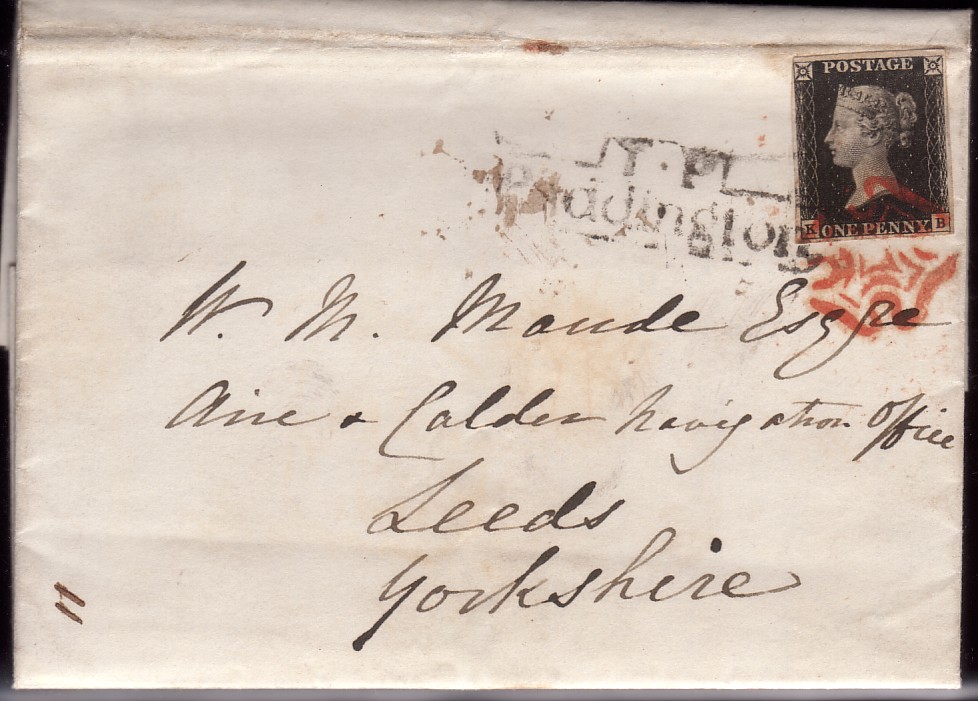 POSTAGE
T.P
Paddington
K ONE PENNY B
W. M. Maude Esqre
Aire & Calder Navigation Office
Leeds
Yorkshire